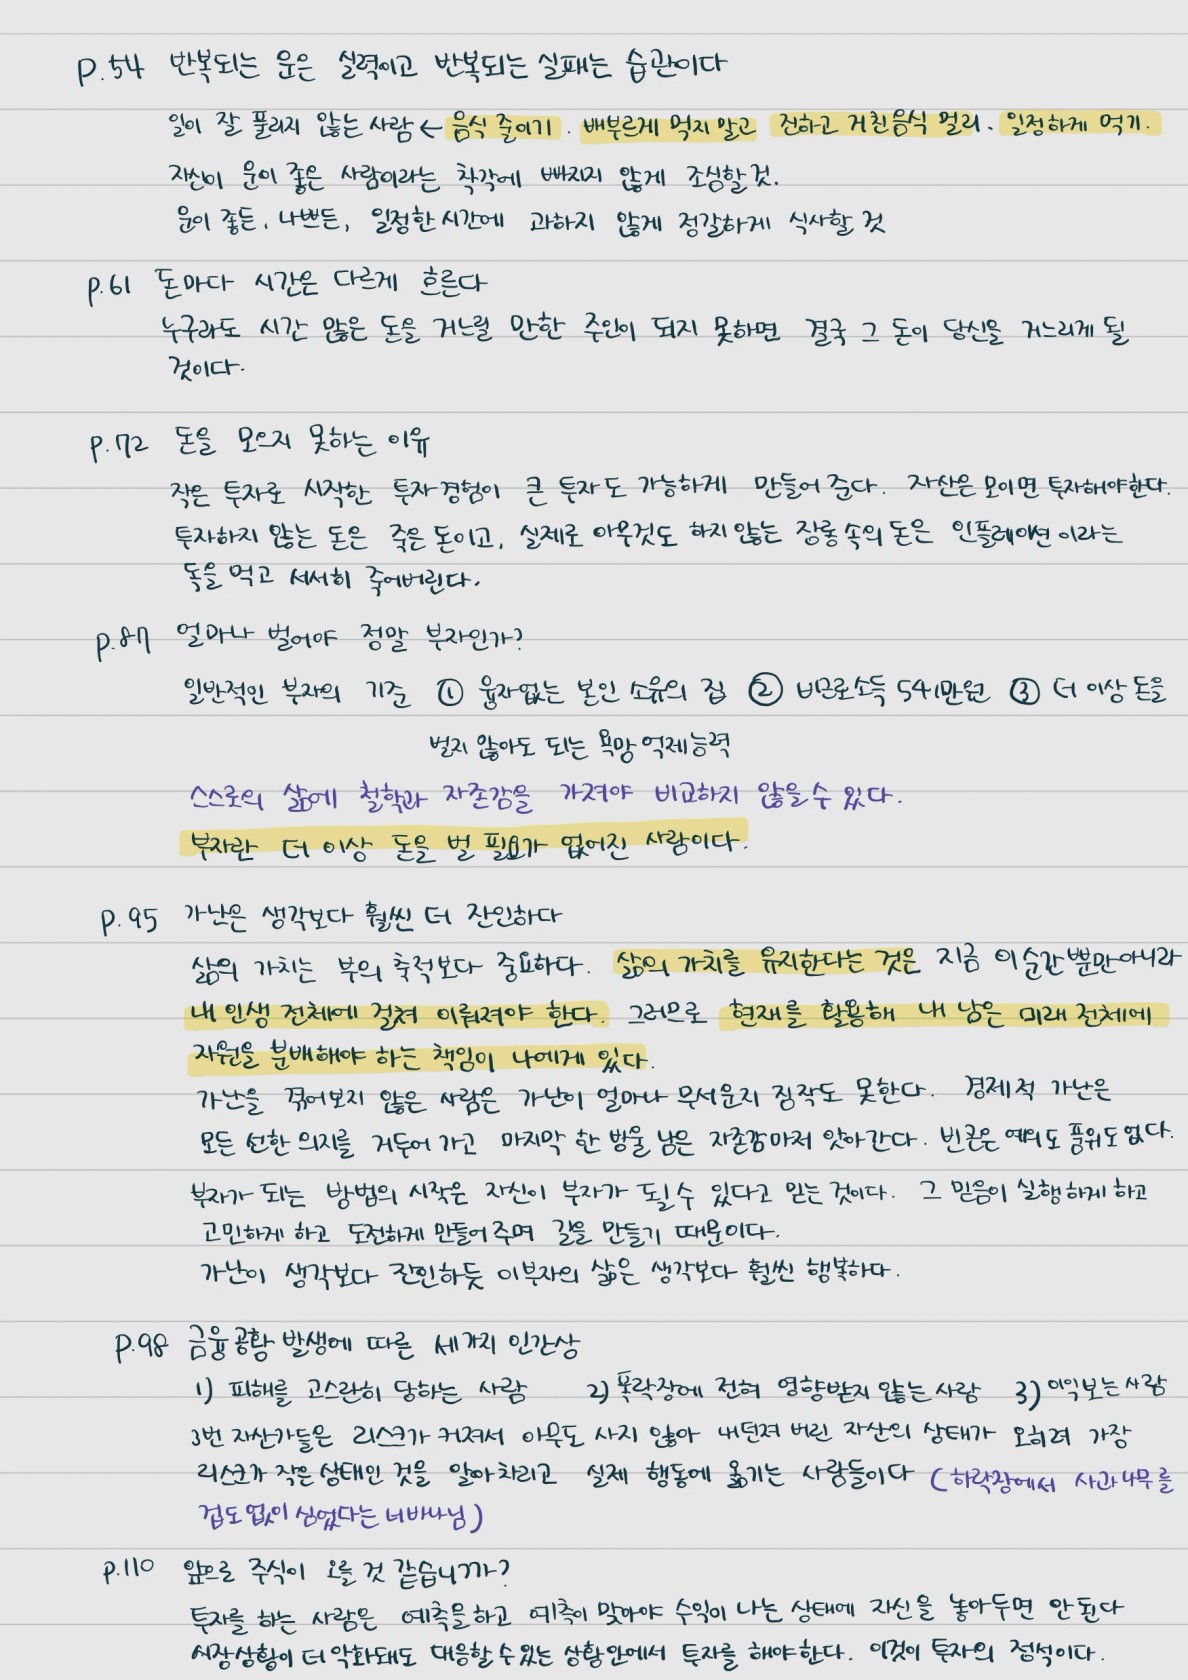 p.54 반복되는 운은 실력이고 반복되는 실패는 습관이다
일이 잘 풀리지 않는 사람 ← 음식 줄이기. 배부르게 먹지 말고 진하고 거친음식 멀리. 일정하게 먹기.
자신이 운이 좋은 사람이라는 착각에 빠지지 않게 조심할 것.
운이 좋든, 나쁘든, 일정한 시간에 과하지 않게 정갈하게 식사할 것
p.61 돈마다 시간은 다르게 흐른다
누구라도 시간 많은 돈을 거느릴 만한 주인이 되지 못하면 결국 그 돈이 당신을 거느리게 될
것이다.
p.72 돈을 모으지 못하는 이유
작은 투자로 시작한 투자경험이 큰 투자도 가능하게 만들어 준다. 자산은 모이면 투자해야한다.
투자하지 않는 돈은 죽은 돈이고, 실제로 아무것도 하지 않는 장롱 속의 돈은 인플레이션이라는
독을 먹고 서서히 죽어버린다.
p.87 얼마나 벌어야 정말 부자인가?
일반적인 부자의 기준 ① 융자없는 본인 소유의 집 ② 비근로소득 541만원 ③ 더 이상 돈을
벌지 않아도 되는 욕망 억제능력
스스로의 삶에 철학과 자존감을 가져야 비교하지 않을 수 있다.
부자란 더 이상 돈을 벌 필요가 없어진 사람이다.
p.95 가난은 생각보다 훨씬 더 잔인하다
삶의 가치는 부의 축적보다 중요하다. 삶의 가치를 유지한다는 것은 지금 이 순간뿐만아니라
내 인생 전체에 걸쳐 이뤄져야 한다. 그러므로 현재를 활용해 내 남은 미래 전체에
자원을 분배해야 하는 책임이 나에게 있다.
가난을 겪어보지 않은 사람은 가난이 얼마나 무서운지 짐작도 못한다. 경제적 가난은
모든 선한 의지를 거두어 가고 마지막 한 방울 남은 자존감마저 앗아간다. 빈곤은 예의도 품위도 없다.
부자가 되는 방법의 시작은 자신이 부자가 될 수 있다고 믿는 것이다. 그 믿음이 실행하게 하고
고민하게 하고 도전하게 만들어 주며 길을 만들기 때문이다.
가난이 생각보다 잔인하듯 이부자의 삶은 생각보다 훨씬 행복하다.
p.98 금융공황 발생에 따른 세가지 인간상
1) 피해를 고스란히 당하는 사람 2) 폭락장에 전혀 영향받지 않는 사람 3) 이익보는 사람
3번 자산가들은 리스크가 커져서 아무도 사지 않아 내던져 버린 자산의 상태가 오히려 가장
리스크가 작은 상태인 것을 알아차리고 실제 행동에 옮기는 사람들이다 (하락장에서 사과나무를
겁도 없이 심었다는 너바나님)
p.110 앞으로 주식이 오를 것 같습니까?
투자를 하는 사람은 예측을하고 예측이 맞아야 수익이 나는 상태에 자신을 놓아두면 안된다
시장상황이 더 악화돼도 대응할 수 있는 상황안에서 투자를 해야한다. 이것이 투자의 정석이다.